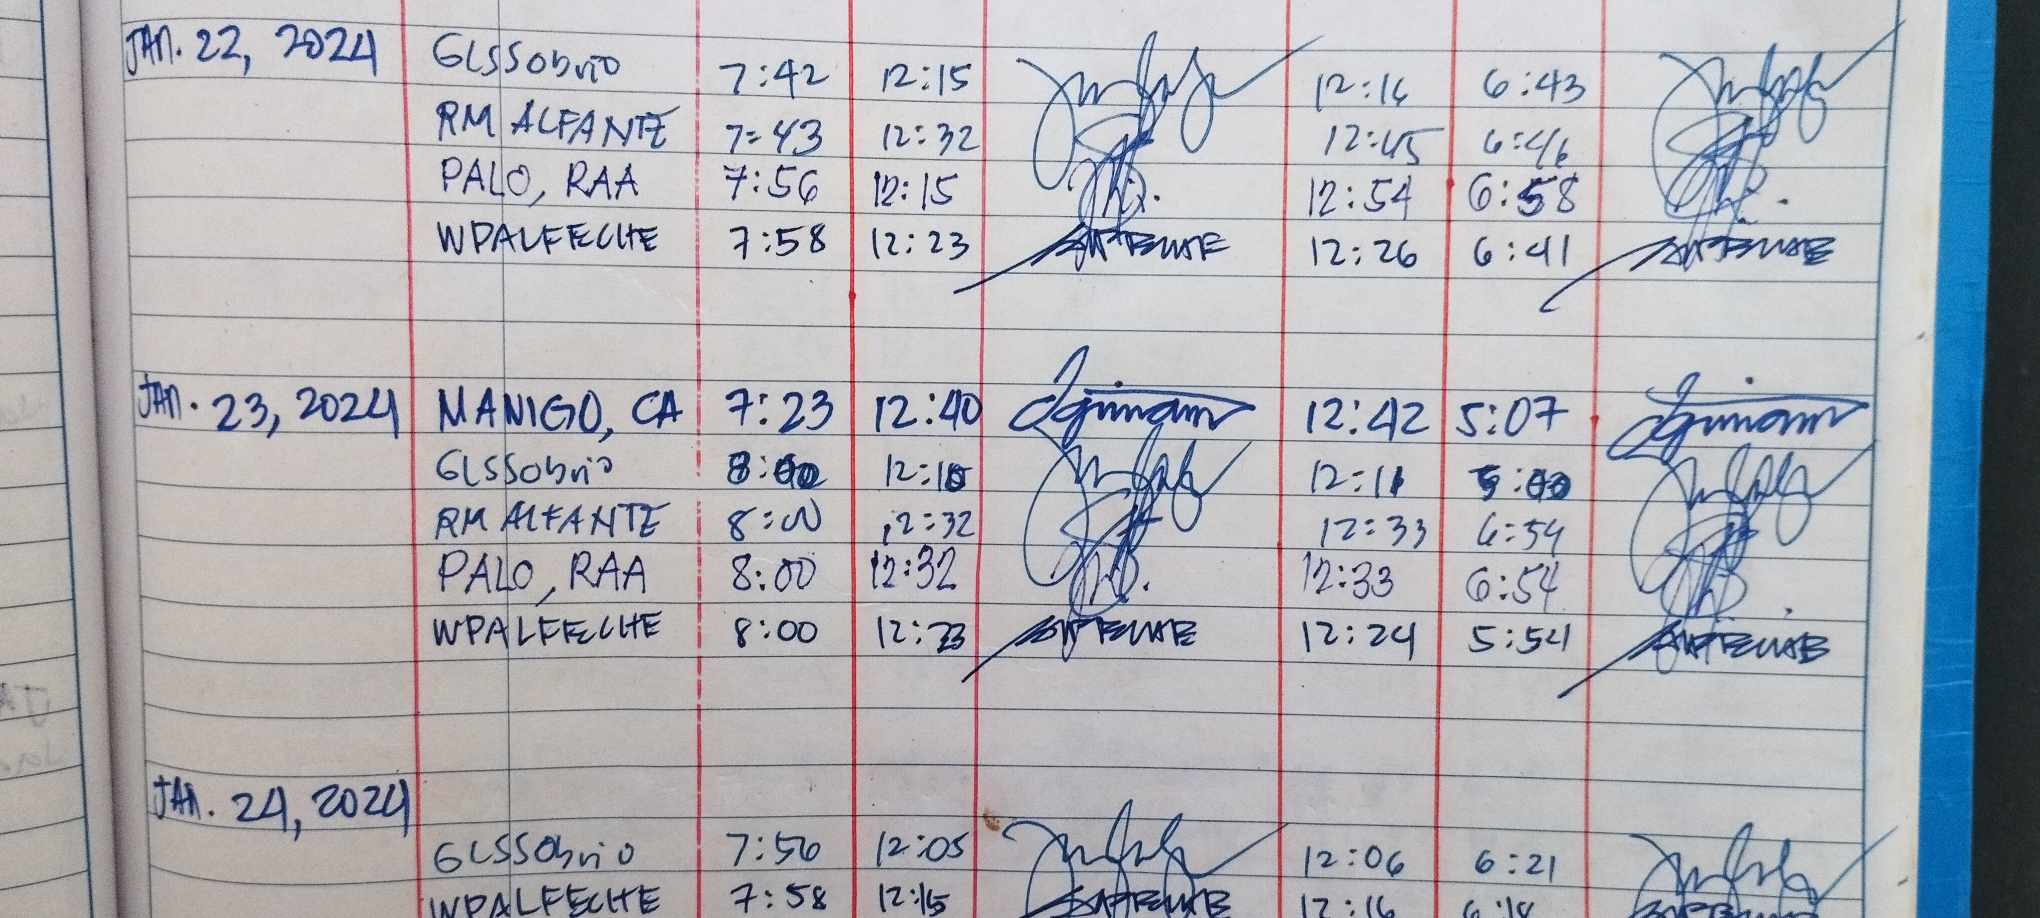 JAN. 22, 2024 GLSSobrio 7:42 12:15 12:16 6:43
RM ALFANTE 7:43 12:32 12:45 6:46
PALO, RAA 7:56 12:15 12:54 6:58
WPALFECHE 7:58 12:23 12:26 6:41
JAN. 23, 2024 MANIGO, CA 7:23 12:40 12:42 5:07
GLSSobrio 8:00 12:10 12:11 5:00
RM ALFANTE 8:00 12:32 12:33 6:54
PALO, RAA 8:00 12:32 12:33 6:54
WPALFECHE 8:00 12:23 12:24 5:54
JAN. 24, 2024
GLSSobrio 7:56 12:05 12:06 6:21
WPALFECHE 7:58 12:15 12:16 6:18